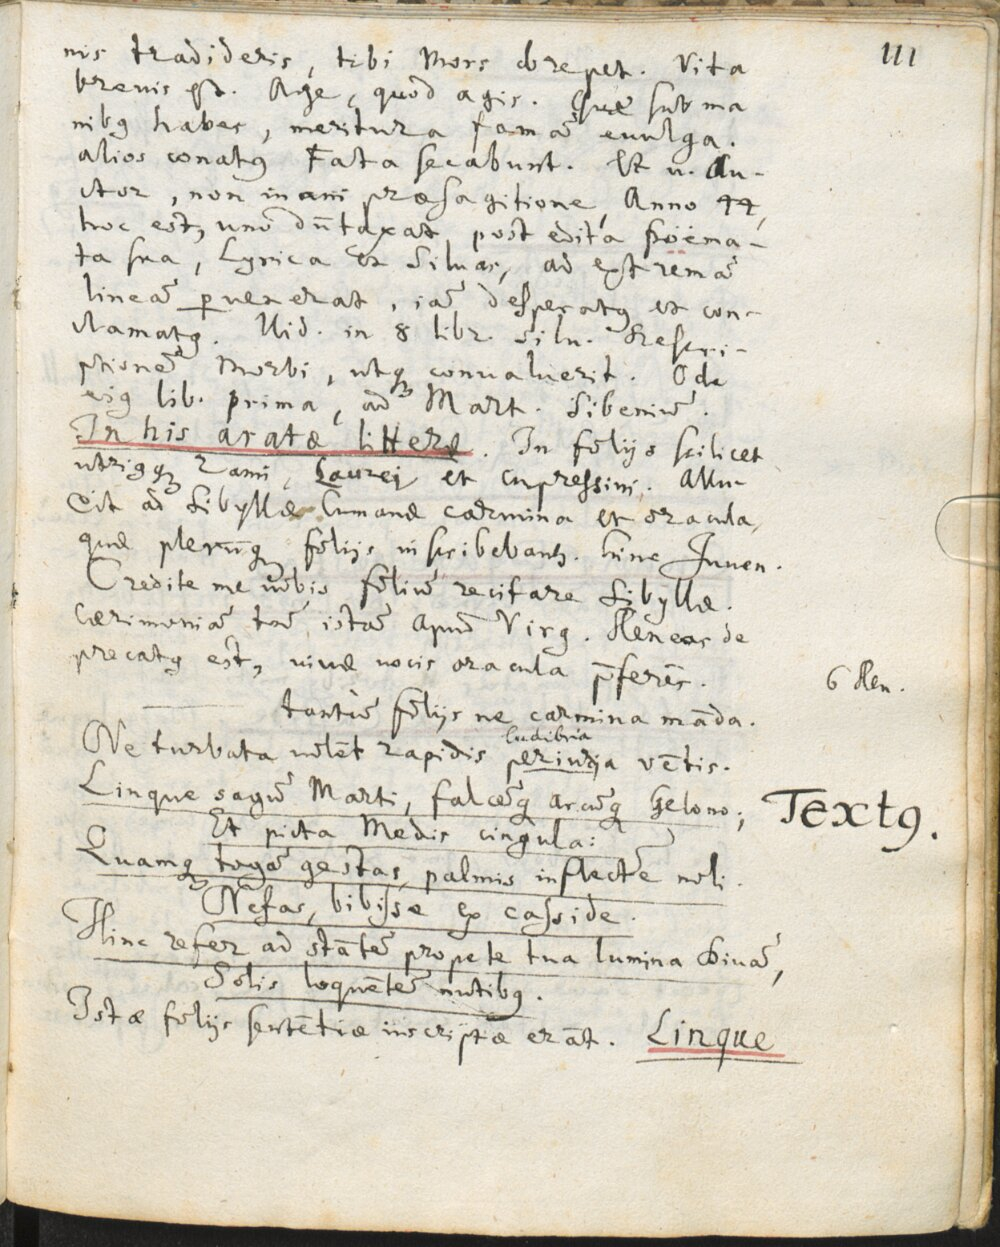 111
nis tradideris, tibi Mors obrepet. Vita
brenis est. Age, quod agis. Quæ sub ma
nibꝰ habes, meritura famā evulga.
alios conatꝰ Fata secabunt. Et v. Au-
ctor, non inani præsagitione, Anno 44,
hoc est, uno dūtaxat post edita poëma-
ta sua, Lyrica et Siluas, ad extremā
lineā ꝑuenerat, iā desperatꝰ et con-
clamatꝰ. Vid. in 8 libr. Silu. descri-
ptionē Morbi, utqꝫ conualuerit. Oda
eiꝰ lib. prima, ad Mart. Sibeniū.
In his aratæ litteræ. In folijs scilicet
utriꝰqꝫ rami, Laurej et cupressini. Allu-
dit ad Sibyllæ Cumanæ carmina et oracula,
quæ plerūqꝫ folijs inscribebant. hinc Juuen.
Credite me uobis foliū recitare Sibyllæ.
Cærimoniā tn̄ istā apud Virg. Aeneas de
precatꝰ est, uiuæ uocis oracula p̄ferēs.
6 Aen.
tantū folijs ne carmina māda.
ludibria
Ne turbata uolēt rapidis periuria vētis.
Linque sagū Marti, falcēqꝫ arcūqꝫ Gelono;
Textꝰ.
Et picta Medis cingula:
Quamqꝫ togā gestas, palmis inflectē noli.
Nefas, bibisse ex casside.
Hinc refer ad stātē propete tua lumina Diuā,
Solis loquētē nutibꝰ.
Istæ folijs sentētiæ inscriptæ erāt. Linque